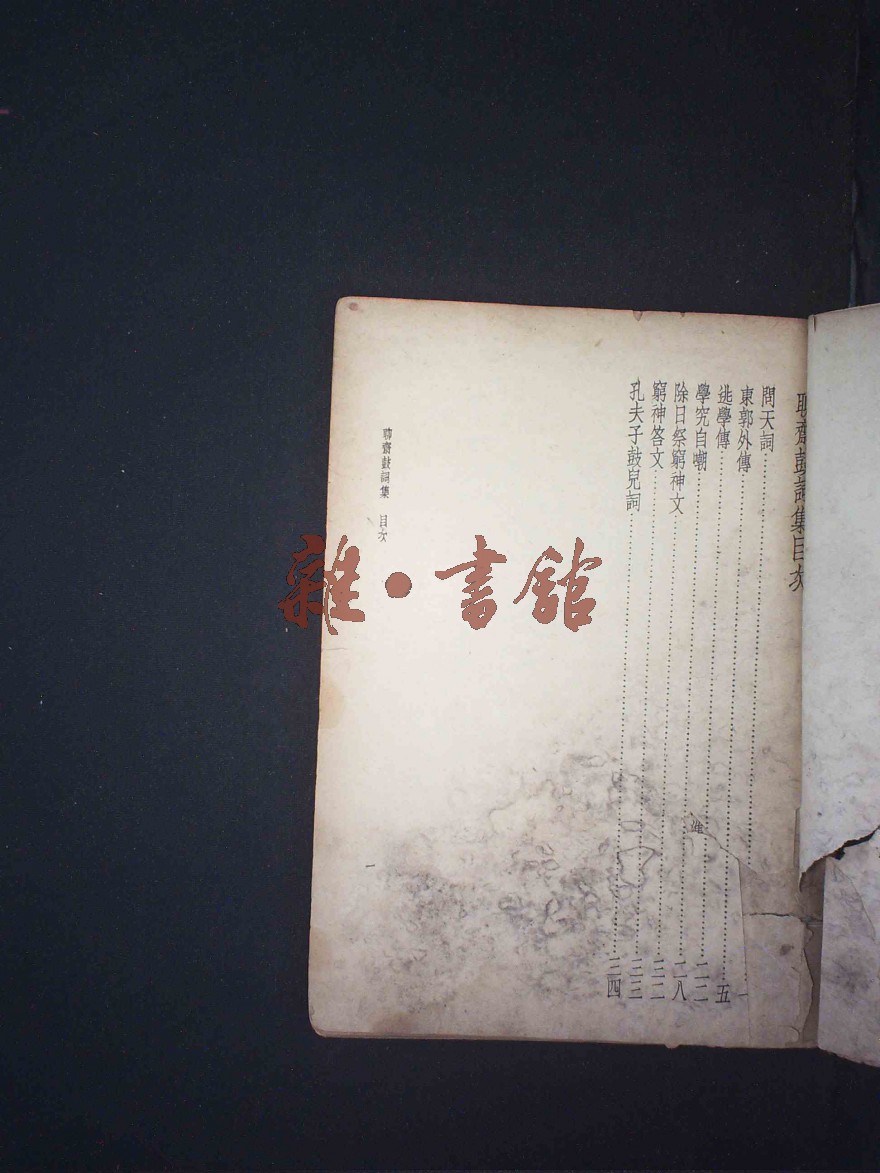 聊齋鼓詞集目次
問天詞……一
東郭外傳……五
逃學傳……二二
學究自嘲……二八
除日祭窮神文……三二
窮神答文……三三
孔夫子鼓兒詞……三四
聊齋鼓詞集 目次
一
雜·書館